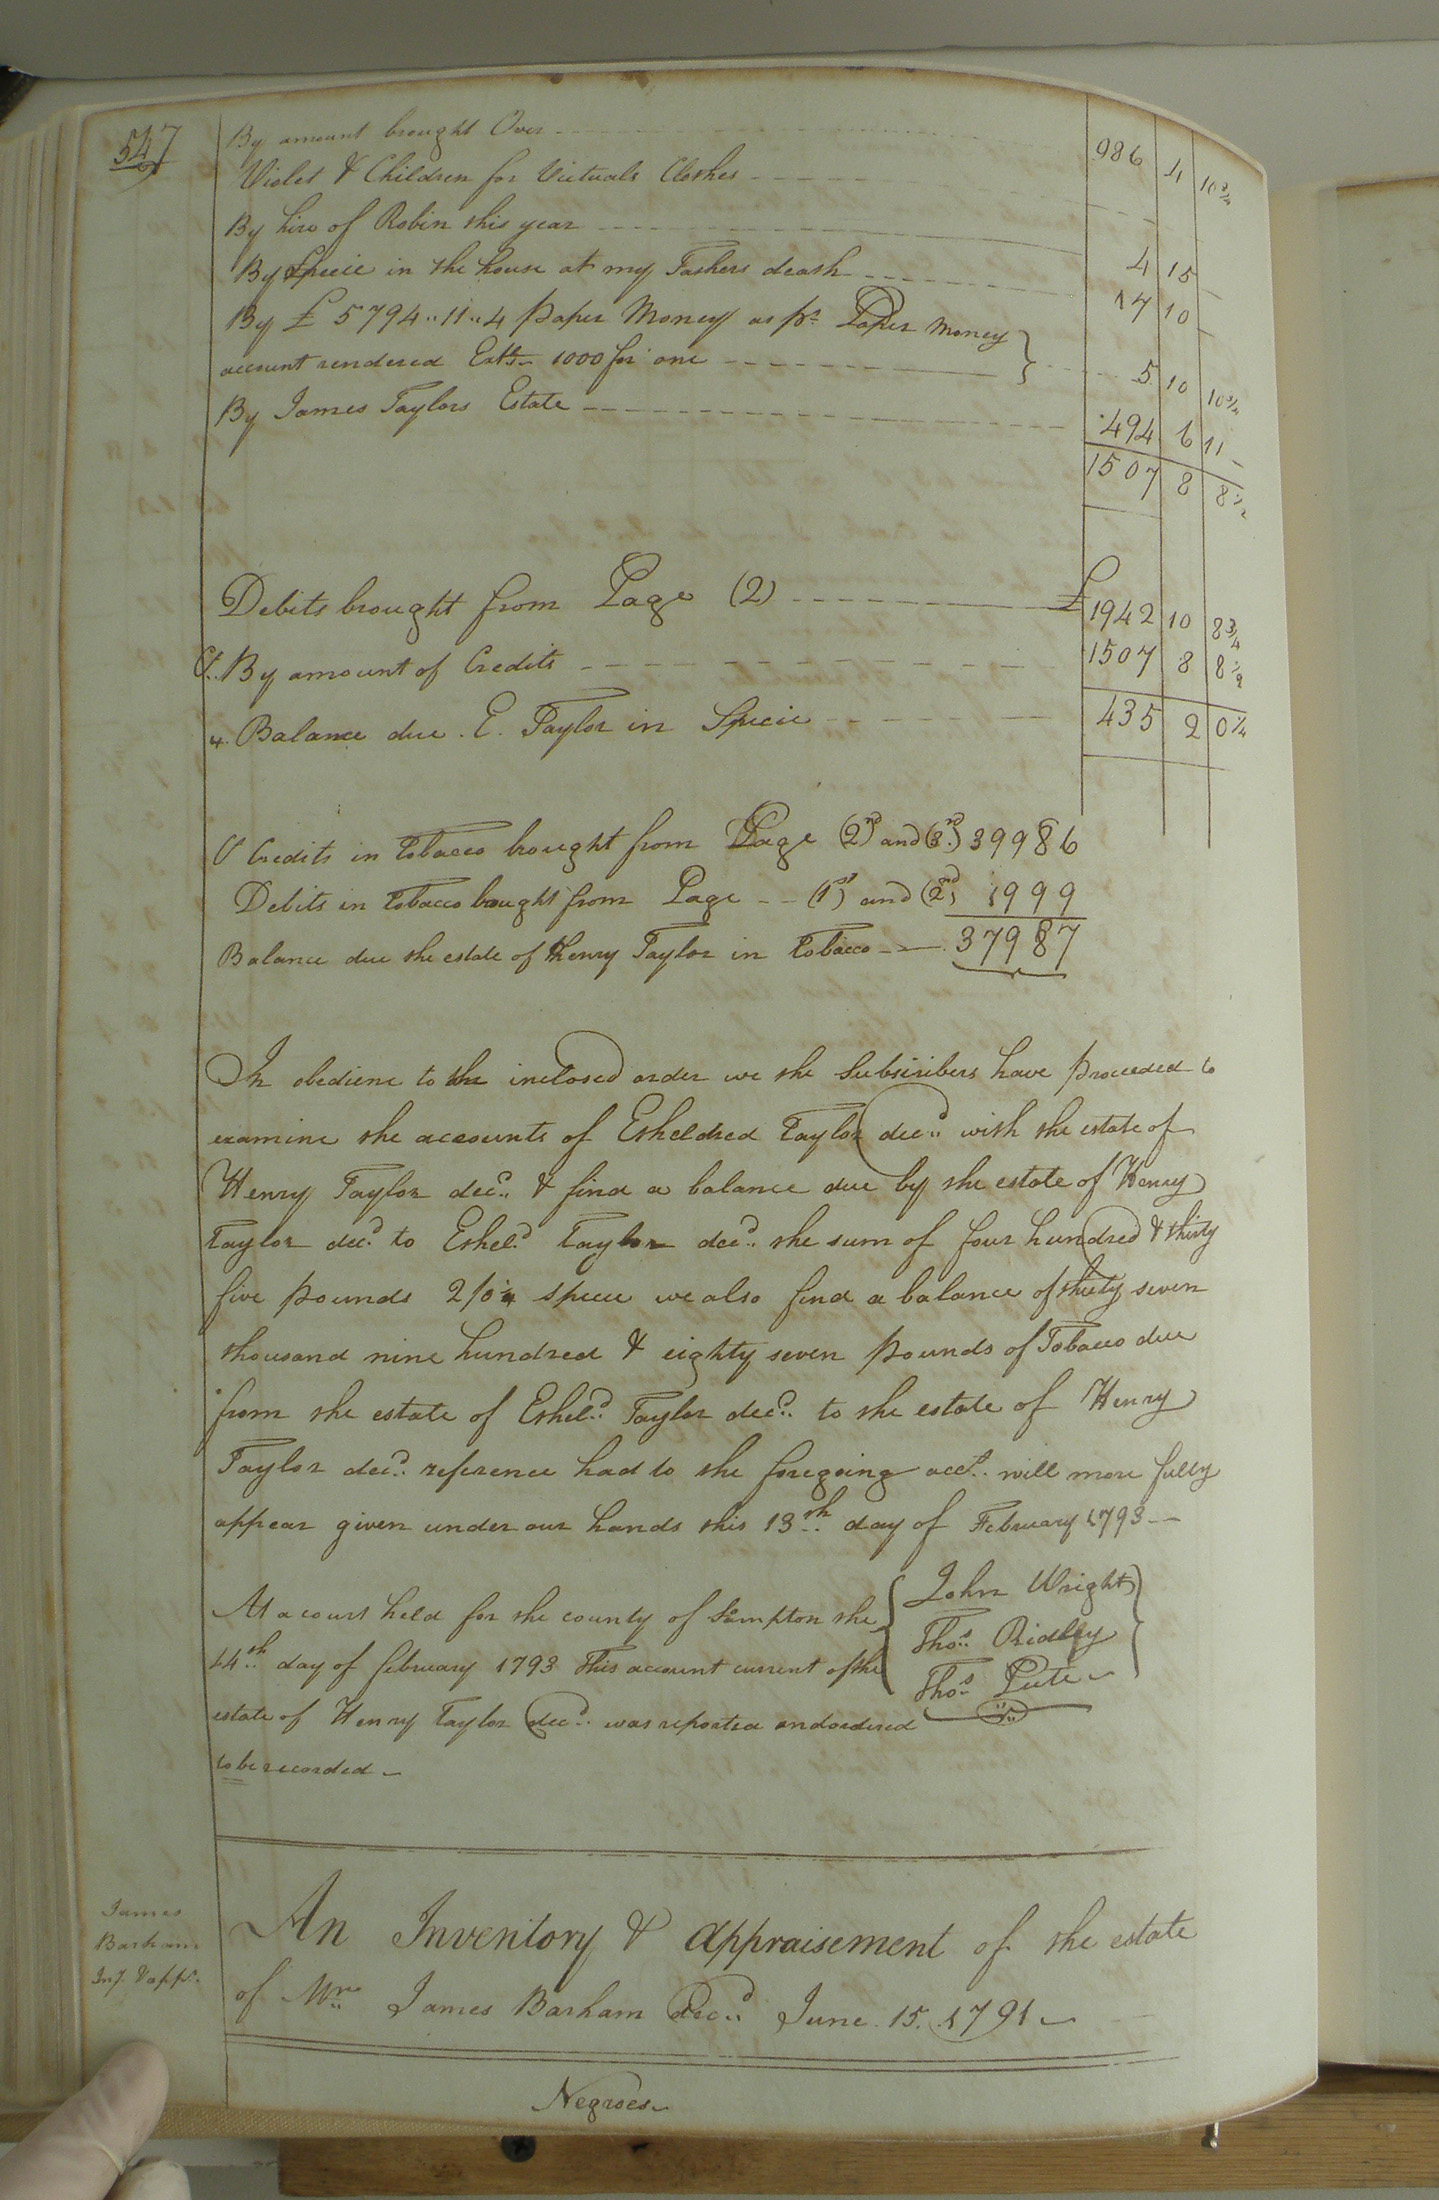 547
By amount brought Over 986 4 10 3/4
Violet & Children for Victuals Clothes
By hire of Robin this year 4 15
By Specie in the house at my Fathers death 17 10
By £ 5794..11..4 paper Money as pr. Paper Money
account rendered Extd. 1000 for one 5 10 10 3/4
By James Taylors Estate 494 6 11
1507 8 8 1/2
Debits brought from Page (2) £ 1942 10 8 3/4
Cr. By amount of Credits 1507 8 8 1/2
Balance due E. Taylor in Specie 435 2 0 1/4
Cr Credits in Tobacco brought from Page (2nd) and (3rd) 39986
Debits in Tobacco bought from Page (1st) and (2nd) 1999
Balance due the estate of Henry Taylor in Tobacco 37987
In obedienc to the inclosed order we the Subscribers have proceeded to
examine the accounts of Etheldred Taylor decd. with the estate of
Henry Taylor decd. & find a balance due by the estate of Henry
Taylor decd. to Etheld. Taylor decd. the sum of four hundred & thirty
five pounds 2/0 1/4 specie we also find a balance of thirty seven
thousand nine hundred & eighty seven pounds of Tobacco due
from the estate of Etheld. Taylor decd. to the estate of Henry
Taylor decd. reference had to the foregoing acct. will more fully
appear given under our hands this 13th day of February 1793
John Wright
Thos. Ridley
Thos. Pete
At a court held for the county of Sampton the
14th day of february 1793 This account current of the
estate of Henry Taylor decd. was reported and ordered
to be recorded
James
Barham
Iny. & appt.
An Inventory & Appraisement of the estate
of Mr. James Barham Decd. June 15. 1791
Negroes